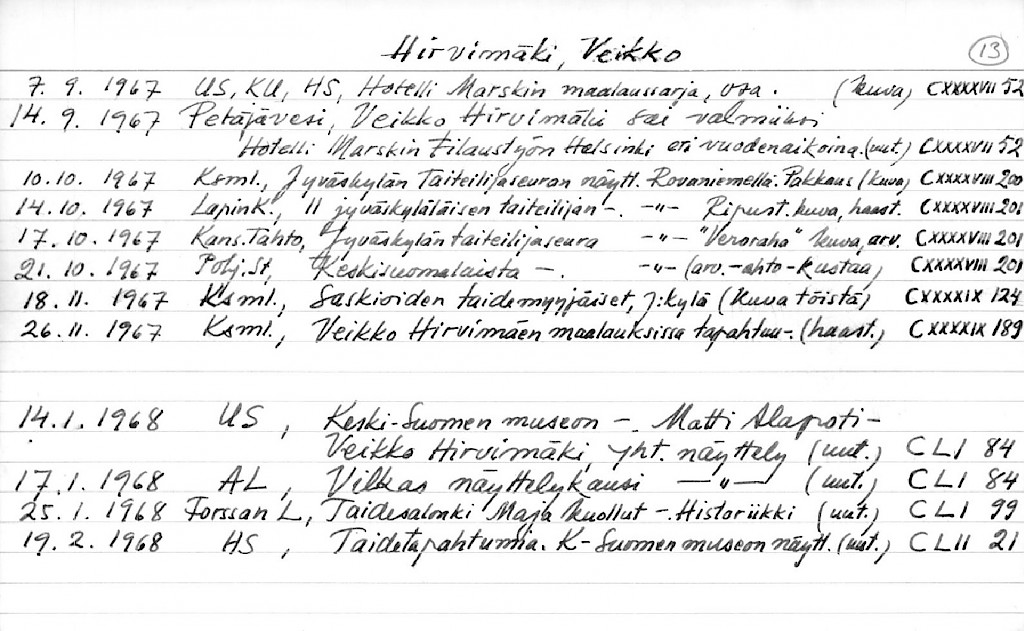 Hirvimäki, Veikko 13
7. 9. 1967 US, KU, HS, Hotelli Marskin maalaussarja, osa. (kuva) CXXXXVII 52
14. 9. 1967 Petäjävesi, Veikko Hirvimäki sai valmiiksi
Hotelli Marskin tilaustyön Helsinki eri vuodenaikoina. (uut.) CXXXXVII 52
10.10. 1967 Ksml., Jyväskylän taiteilijaseuran näytt. Rovaniemellä. Pakkaus (kuva) CXXXXVIII 200
14.10. 1967 LapinK., 11 jyväskyläläisen taiteilijan -. -"- Ripust. kuva, haast. CXXXXVIII 201
17.10.1967 Kans.Tahto, Jyväskylän taiteilijaseura -"- "Veroraha" kuva, arv. CXXXXVIII 201
21.10.1967 Pohj.St, Keskisuomalaista -. -"- (arv. -ahto-kustaa) CXXXXVIII 201
18.11. 1967 Ksml., Saskioiden taidemyyjäiset, J:kylä (kuva töistä) CXXXXIX 124
26.11. 1967 Ksml., Veikko Hirvimäen maalauksissa tapahtuu-. (haast.) CXXXXIX 189
14.1. 1968 US, Keski-Suomen museon -. Matti Alapoti-
Veikko Hirvimäki, yht. näyttely (uut.) CLI 84
17.1. 1968 AL, Vilkas näyttelykausi -"- (uut.) CLI 84
25.1. 1968 Forssan L, Taidesalonki Maja kuollut -. Historiikki (uut.) CLI 99
19. 2. 1968 HS, Taidetapahtumia. K-Suomen museon näytt. (uut.) CLII 21